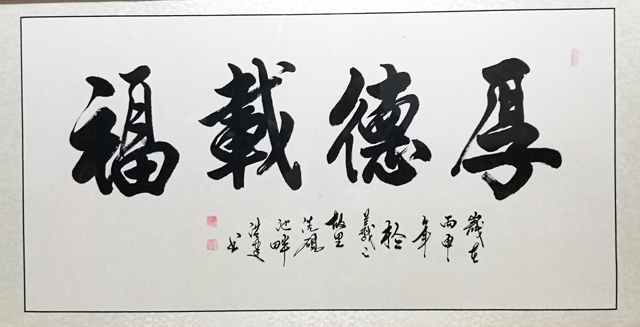 厚德載福
歲在
丙申
年
於
羲之
故里
洗硯
池畔
書